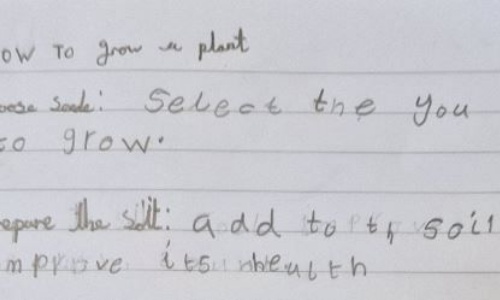 ow To grow a plant
oese Seede: Select the you
to grow.
epare the Soit: add to th soil
improve its health